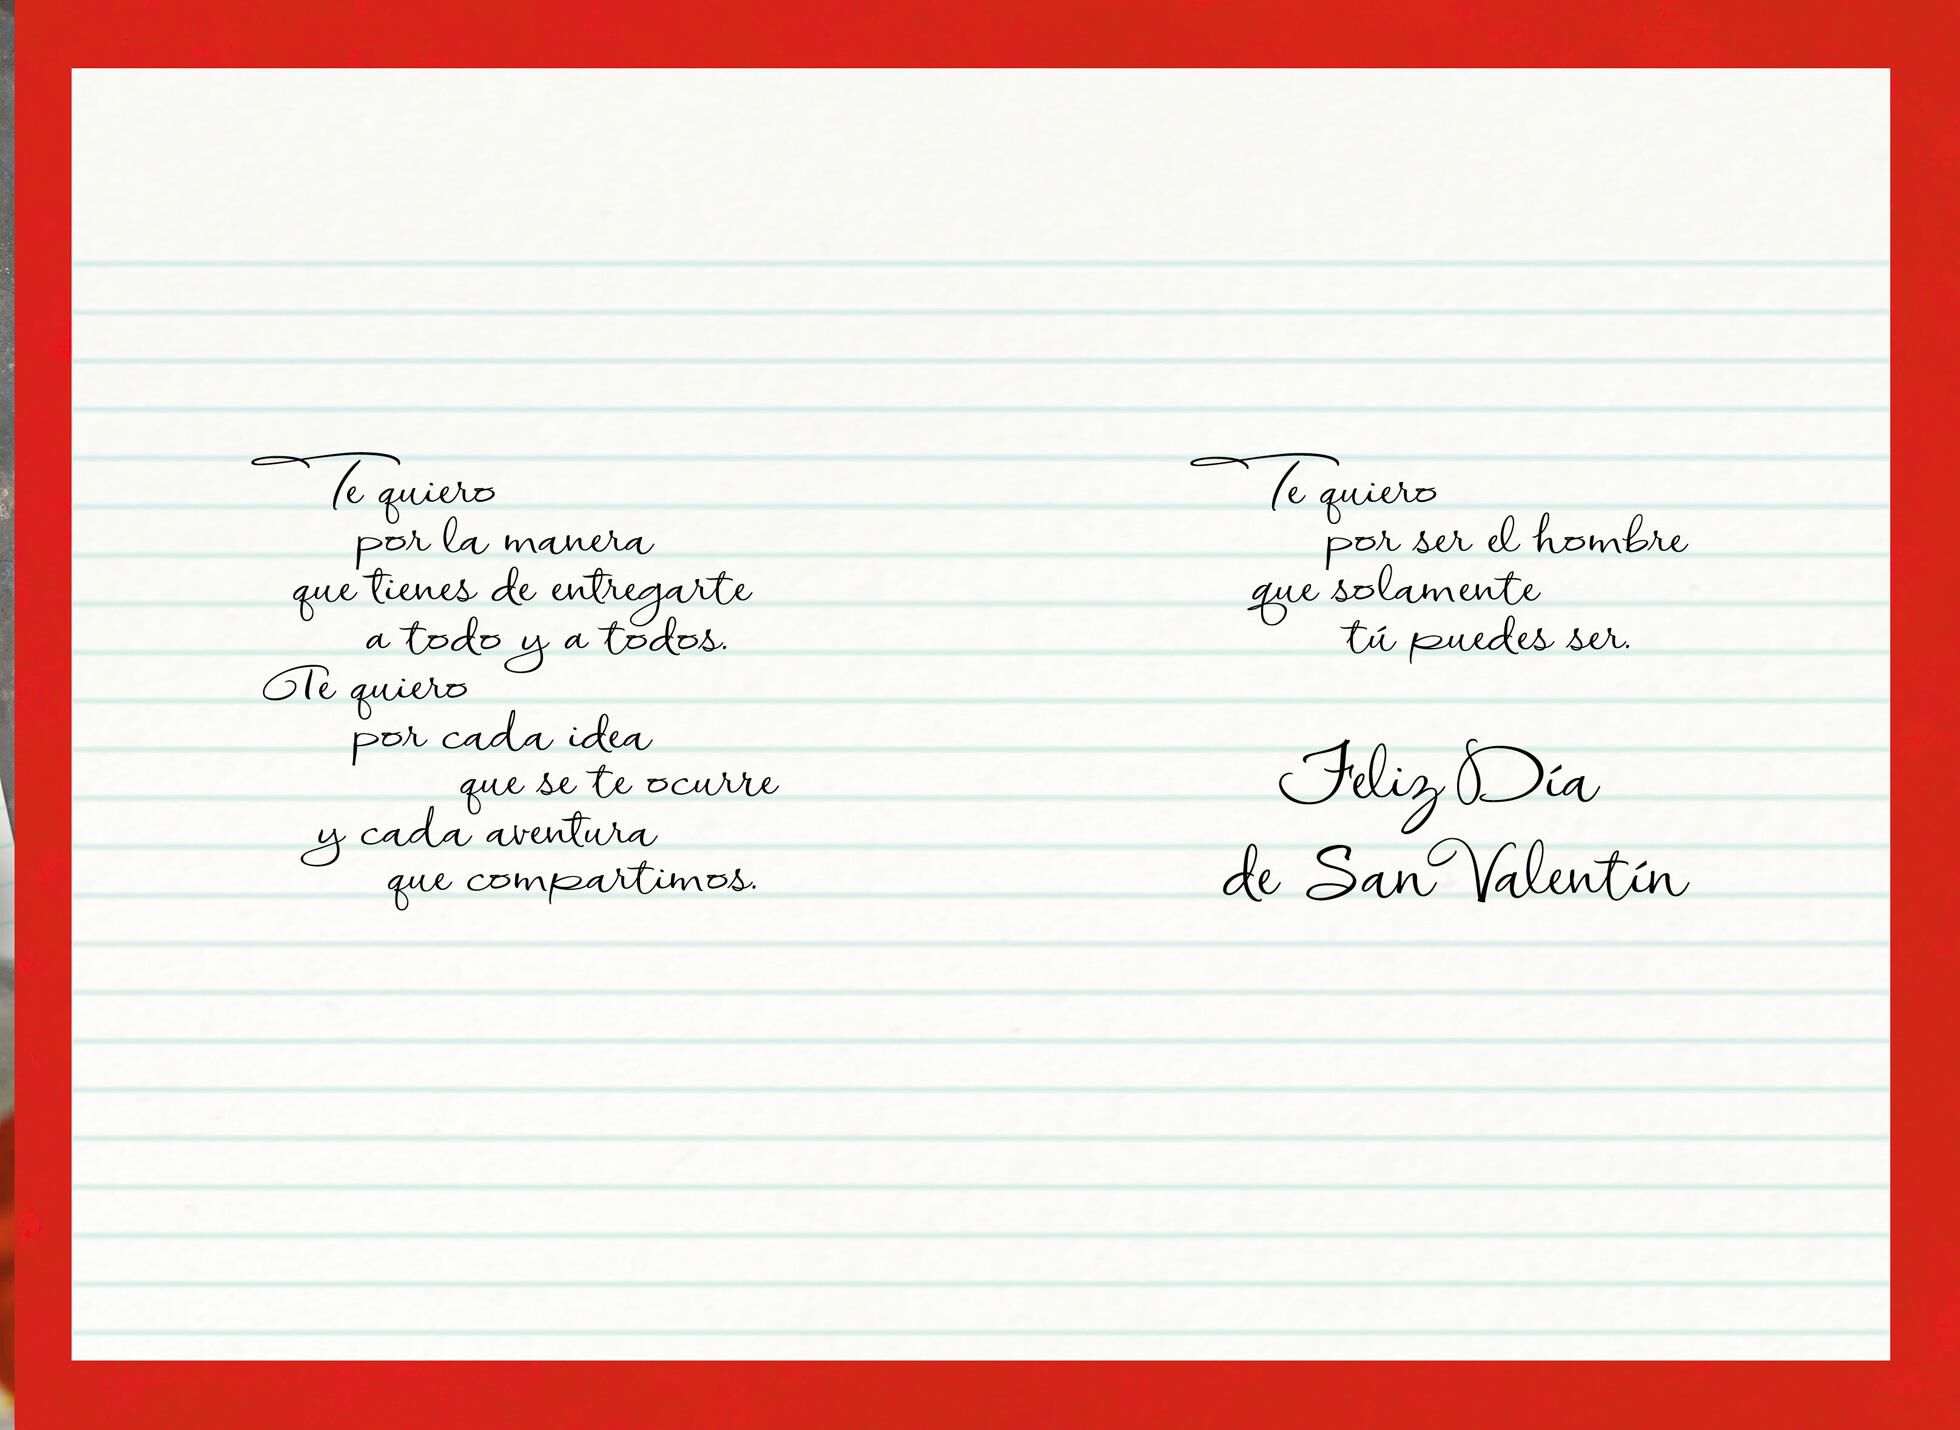 Te quiero
por la manera
que tienes de entregarte
a todo y a todos.
Te quiero
por cada idea
que se te ocurre
y cada aventura
que compartimos.
Te quiero
por ser el hombre
que solamente
tú puedes ser.
Feliz Día
de San Valentín